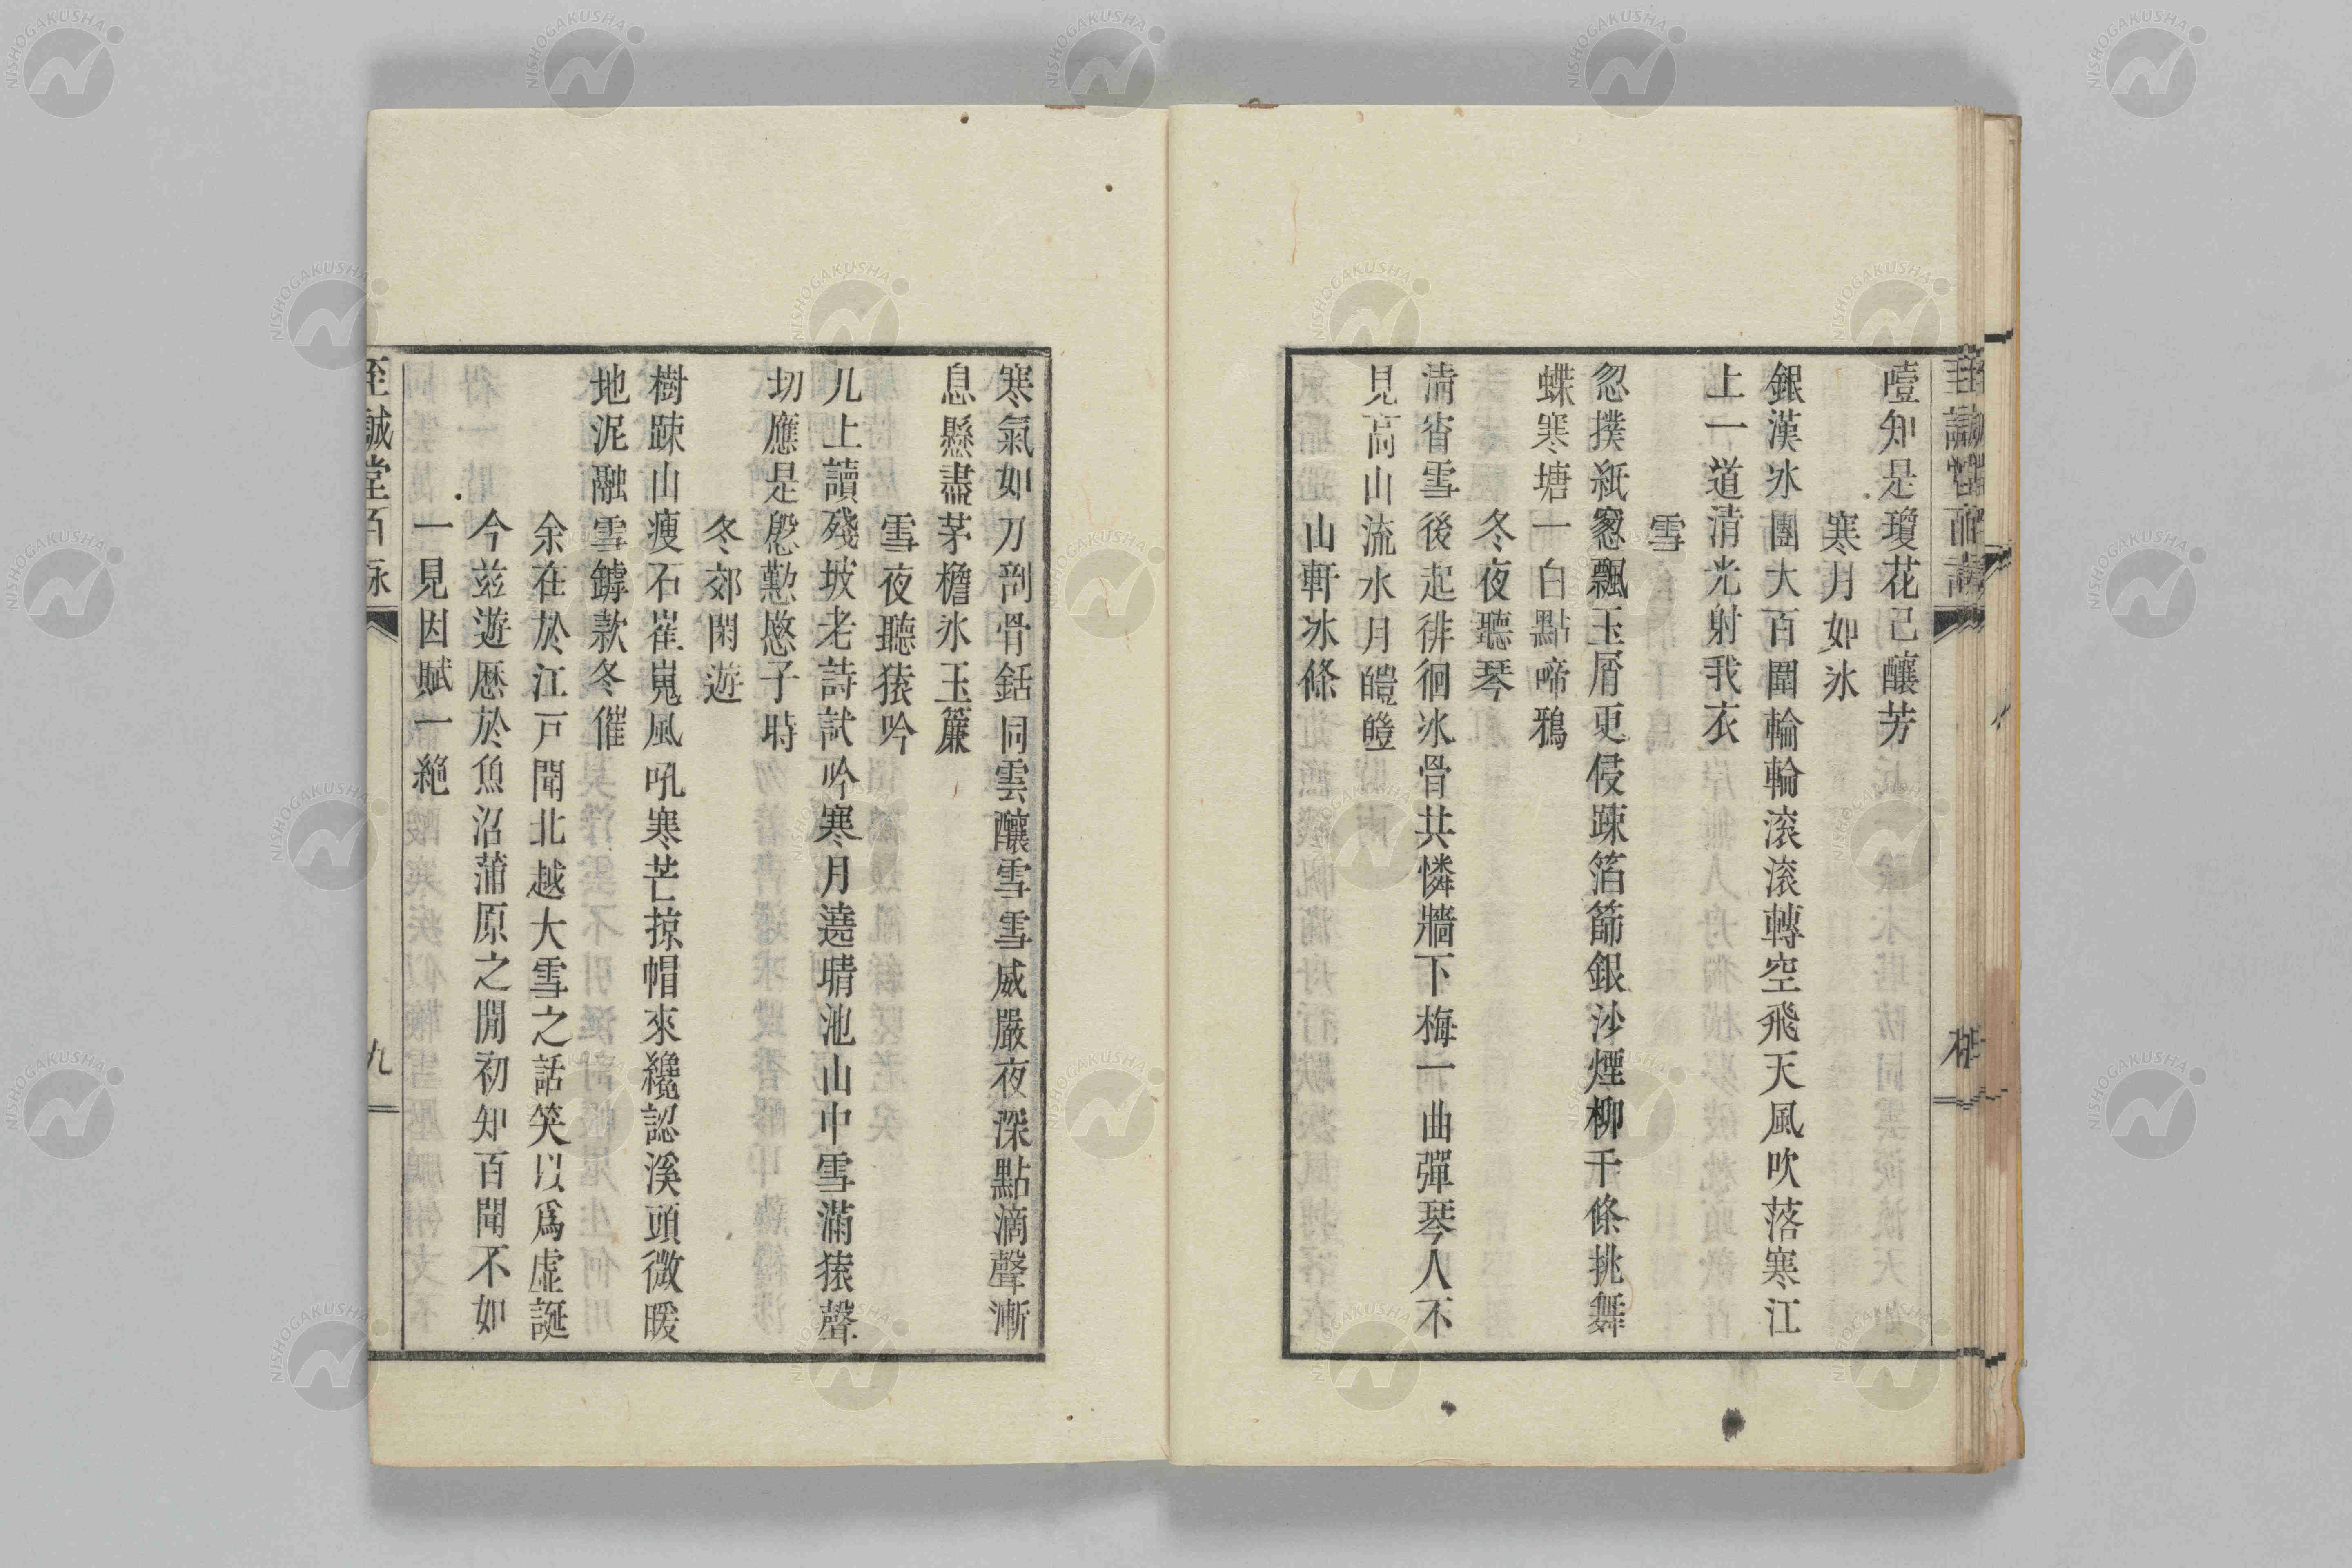 噎知是瓊花已釀芳
寒月如氷
銀漢氷團大百圍輪輪滚滚轉空飛天風吹落寒江
上一道清光射我衣
雪
忽撲紙窓忽飄玉屑更侵踈箔篩銀沙煙柳千條挑舞
蝶寒塘一白點啼鴉
冬夜聽琴
清宵雪後起徘徊氷骨共憐牆下梅一曲彈琴人不
見高山流水月皚皚
山軒氷條
寒氣如刀剖骨銛同雲釀雪雪威嚴夜深點滴聲漸
息懸盡茅檐氷玉簾
雪夜聽猿吟
儿上讀殘坡老詩試吟寒月遶晴池山中雪滿猿聲
切應是慇懃愍子時
冬郊閑遊
樹踈山瘦石崔嵬風吼寒芒掠帽來纔認溪頭微暖
地泥融雪罅款冬催
余在於江戸聞北越大雪之話笑以爲虛誕
今茲遊歷於魚沼蒲原之間初知百聞不如
一見因賦一絶
至誠堂百詠
九
NISHOGAKUSHA